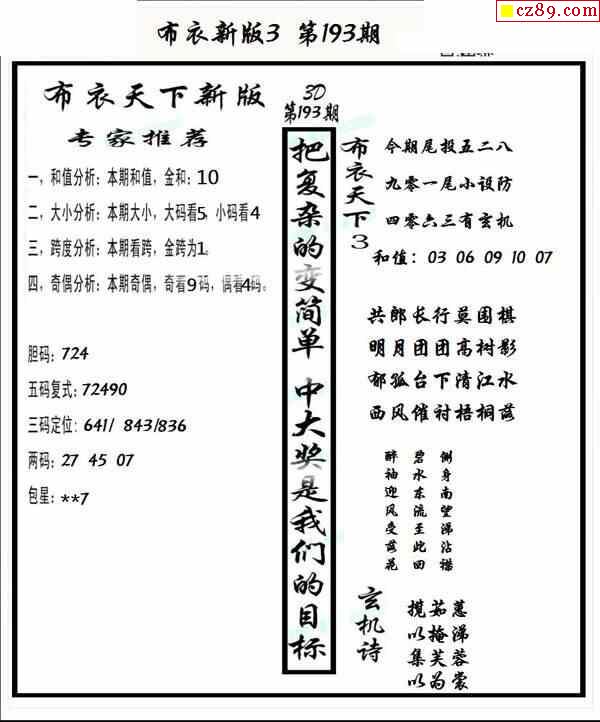 cz89.com
布衣新版3 第193期
布衣天下新版
专家推荐
一，和值分析：本期和值，金和：10
二，大小分析：本期大小，大码看5，小码看4
三，跨度分析：本期看跨，金跨为1。
四，奇偶分析：本期奇偶，奇看9码，偶看4码。
胆码：724
五码复式：72490
三码定位：641/ 843/836
两码：27 45 07
包星：**7
3D
第193期
把复杂的变简单 中大奖是我们的目标
布衣天下3
今期尾投五二八
九零一尾小设防
四零六三有玄机
和值：03 06 09 10 07
共郎长行莫围棋
明月团团高树影
郁孤台下清江水
西风催衬梧桐落
醉袖迎风受落花
碧水东流至此回
侧身南望涕沾襟
玄机诗
揽茹蕙
以掩涕
集芙蓉
以为裳